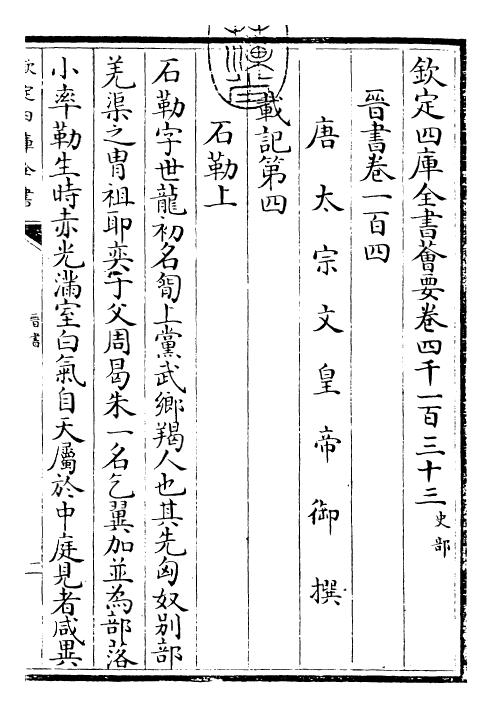 欽定四庫全書薈要卷四千一百三十三史部
晉書卷一百四
唐太宗文皇帝御撰
載記第四
石勒上
石勒字世龍初名㔨上黨武鄉羯人也其先匈奴别部
羌渠之胄祖耶奕于父周曷朱一名乞翼加並為部落
小率勒生時赤光滿室白氣自天屬於中庭見者咸異
欽定四庫全書
晉書